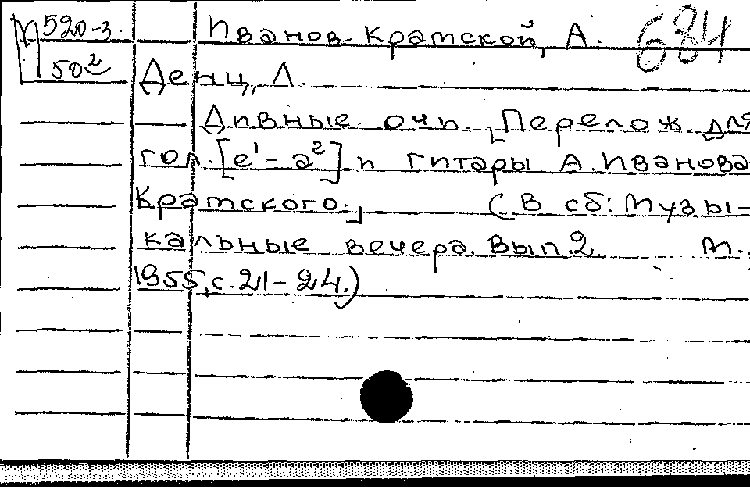 М520-3. Иванов-Кратской, А. 684
50² Денц, Л.
Дивные очи. [Перелож. для
гол. [e¹-a²] и гитары А. Иванова
Кратского.] (В сб: Музы-
кальные вечера. Вып. 2. М.,
1955, с. 21-24.)